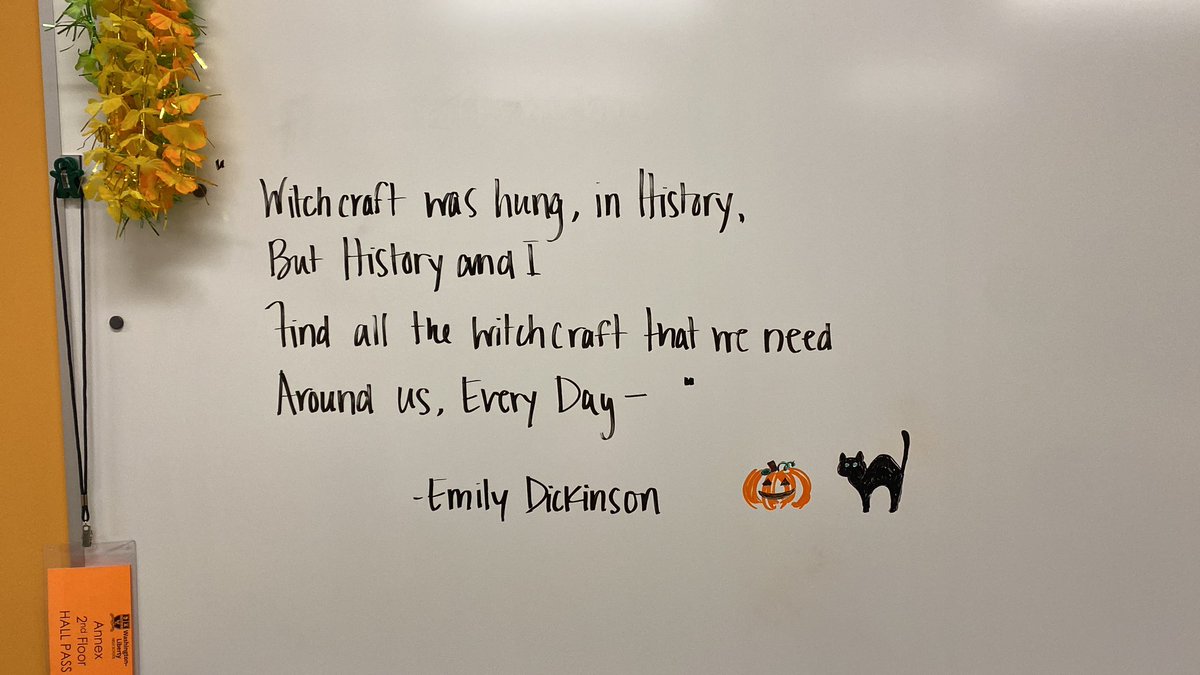 "
Witchcraft was hung, in History,
But History and I
Find all the witchcraft that we need
Around us, Every Day— "
-Emily Dickinson
Washington-
Liberty
Annex
2nd Floor
HALL PASS